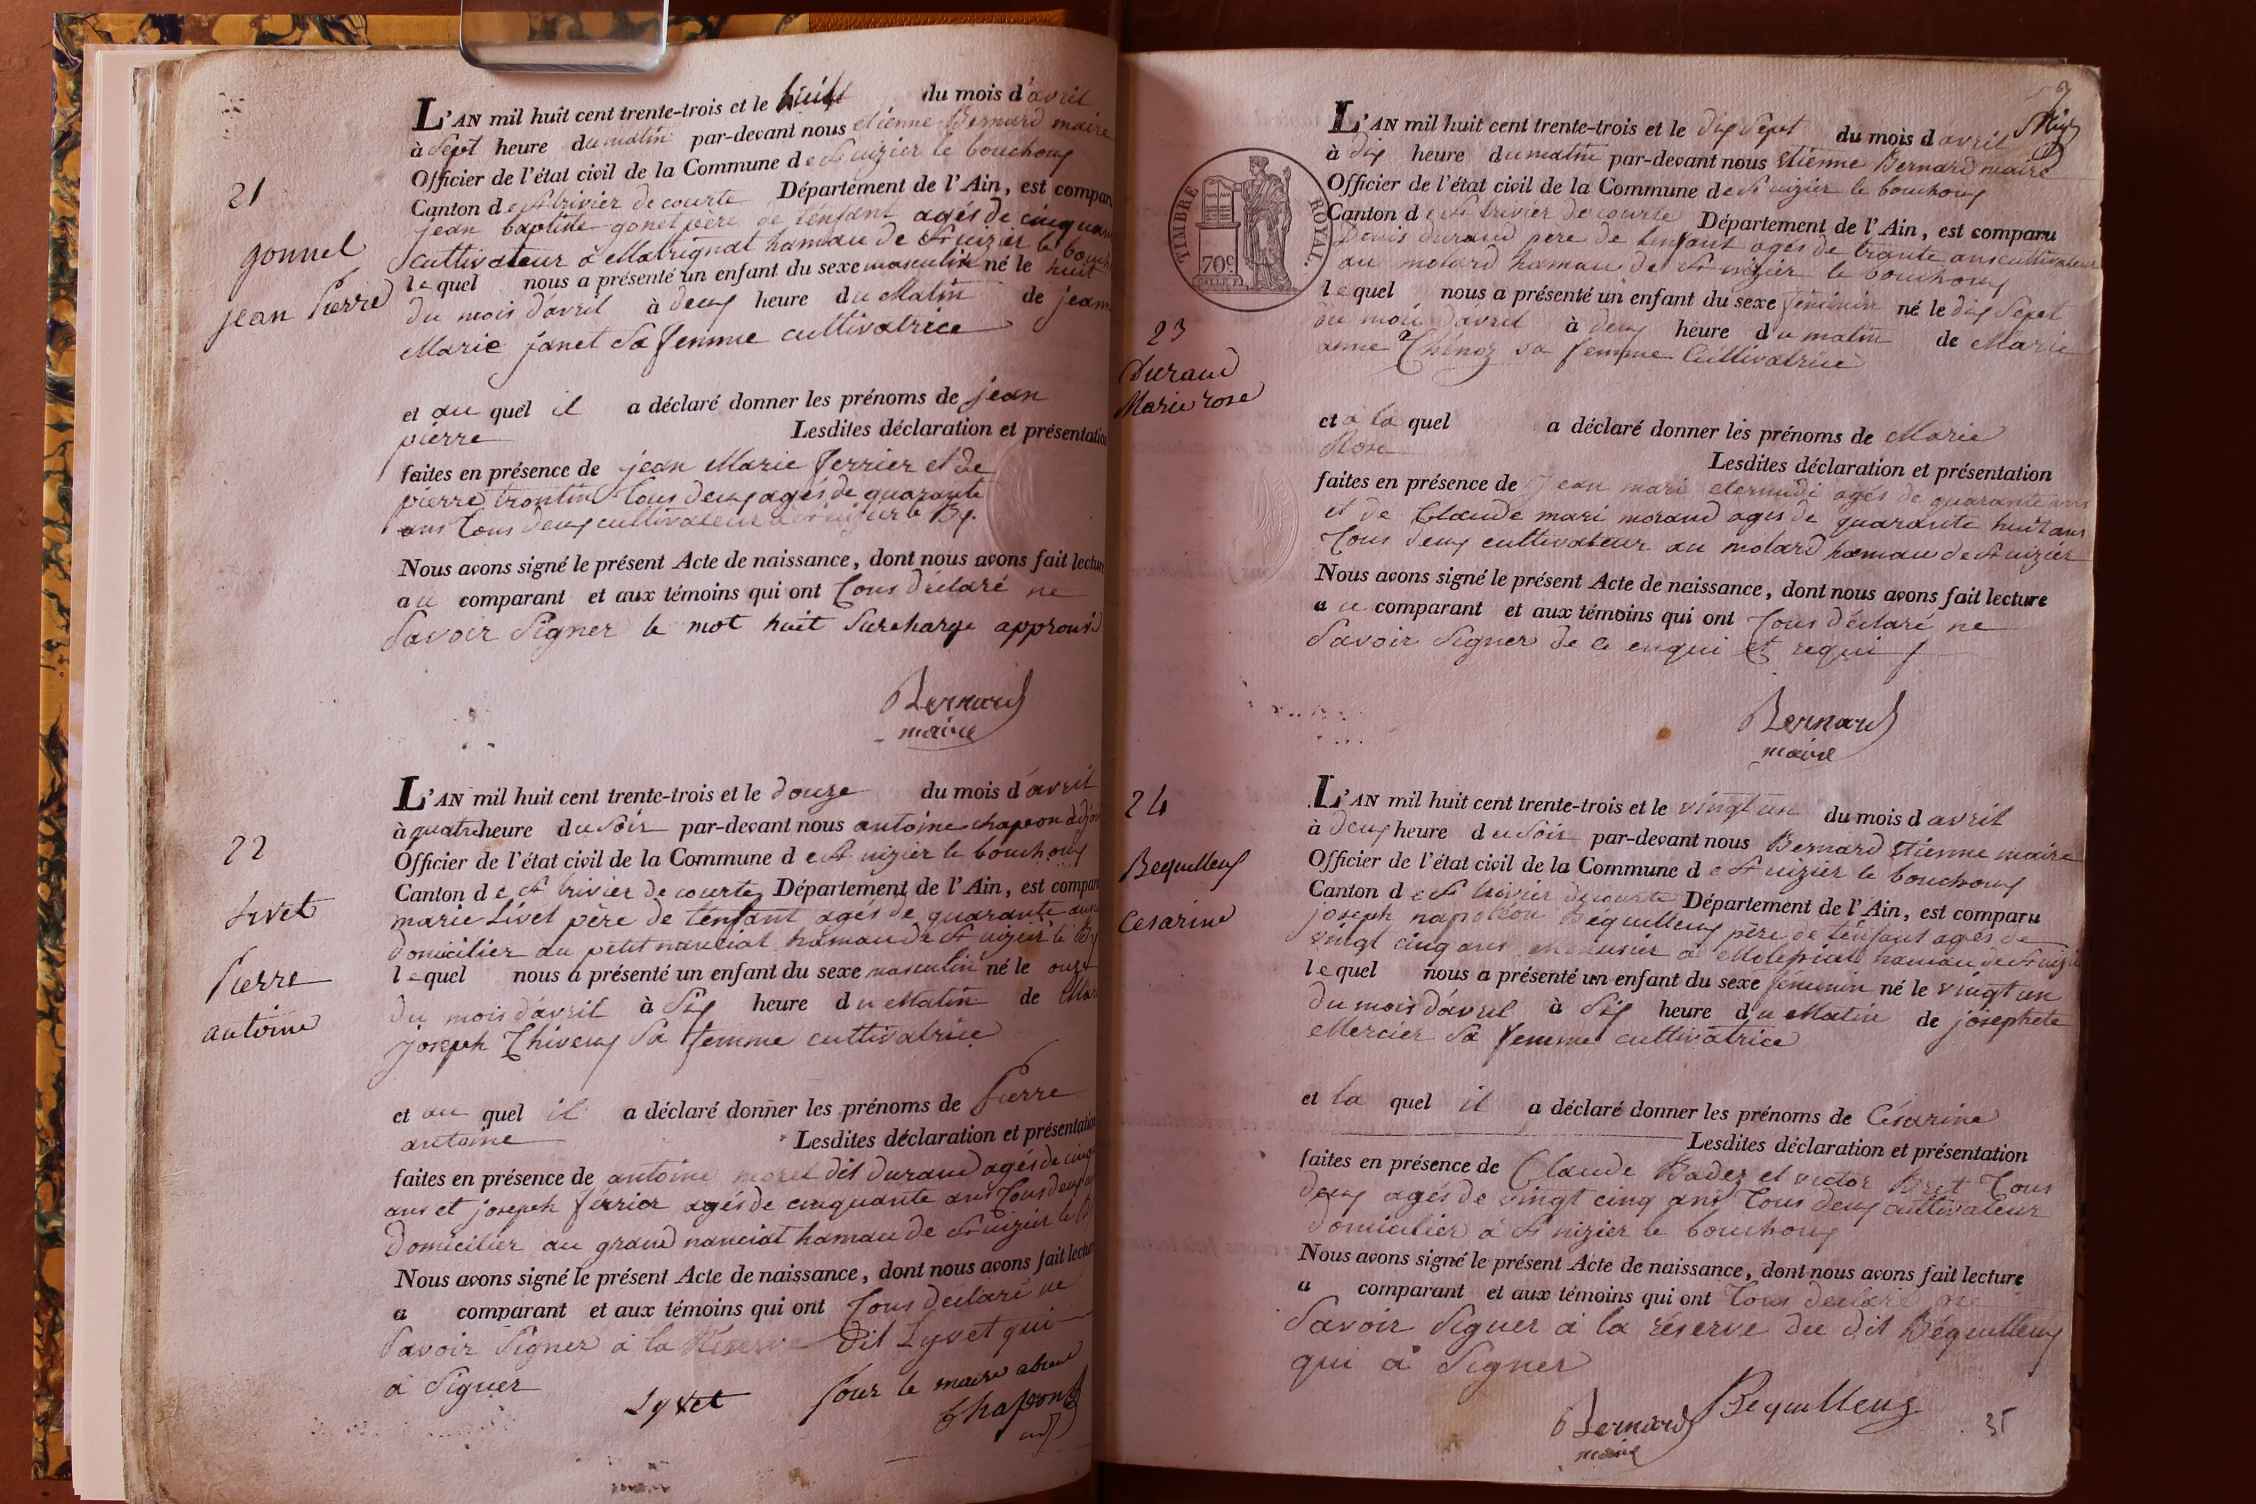 21
gonnet
jean Pierre
L'AN mil huit cent trente-trois et le huit du mois d'avril
à Sept heure du matin par-devant nous etienne Bernard maire
Officier de l'état civil de la Commune de St nizier le bouchoux
Canton de St trivier de courte Département de l'Ain, est compar
jean baptiste gonet père de l'enfant agés de cinquan
cultivateur à Matrignat hamau de St nizier le bouch
lequel nous a présenté un enfant du sexe masculin né le huit
du mois d'avril à deux heure du Matin de jeann
Marie janet Sa femme cultivatrice
et au quel il a déclaré donner les prénoms de jean
pierre Lesdites déclaration et présentation
faites en présence de jean Marie ferrier et de
pierre trontin tous deux agés de quarante
ans tous deux cultivateur à St nizier le Bx.
Nous avons signé le présent Acte de naissance, dont nous avons fait lecture
au comparant et aux témoins qui ont tous déclaré ne
Savoir Signer le mot huit Surcharge approuvé
Bernard
maire
22
Livet
Pierre
antoine
L'AN mil huit cent trente-trois et le douze du mois d'avril
à quatre heure du Soir par-devant nous antoine chapron adjoi
Officier de l'état civil de la Commune de St nizier le bouchoux
Canton de St trivier de courtes Département de l'Ain, est compar
marie Livet père de l'enfant agés de quarante ans
domicilier au petit nanciat hamau de St nizier le Bx
lequel nous a présenté un enfant du sexe masculin né le onze
du mois d'avril à Six heure du Matin de Mari
joseph Thivent Sa femme cultivatrice
et au quel il a déclaré donner les prénoms de Pierre
antoine Lesdites déclaration et présentation
faites en présence de antoine morel dit durand agés de cinq
ans et joseph ferrier agés de cinquante ans tous deux
domicilier au grand nanciat hamau de St nizier le B
Nous avons signé le présent Acte de naissance, dont nous avons fait lectu
a comparant et aux témoins qui ont tous déclaré ne
Savoir Signer à la Réserve dit Lyvet qui
a Signer
Lyvet pour le maire absent
Chapron
adj
TIMBRE ROYAL.
70c
23
Durand
Marie rose
L'AN mil huit cent trente-trois et le dix Sept du mois d avril
à dix heure du matin par-devant nous Etienne Bernard maire
Officier de l'état civil de la Commune de St nizier le bouchoux
Canton de St trivier de courte Département de l'Ain, est comparu
Denis durand père de l'enfant agés de trante ans cultivateur
au molard hamau de St nizier le bouchoux
lequel nous a présenté un enfant du sexe féminin né le dix Sept
du mois d'avril à deux heure du matin de Marie
anne Thénoz sa femme Cultivatrice
et à la quel a déclaré donner les prénoms de Marie
Rose Lesdites déclaration et présentation
faites en présence de jean mari agés de quarante ans
et de Claude mari morand agés de quarante huit ans
tous deux cultivateur au molard hamau de St nizier
Nous avons signé le présent Acte de naissance, dont nous avons fait lecture
au comparant et aux témoins qui ont tous déclaré ne
Savoir Signer de ce enqui et requi
Bernard
maire
24
Bequilleux
Cesarine
L'AN mil huit cent trente-trois et le vingt un du mois d avril
à deux heure du Soir par-devant nous Bernard Etienne maire
Officier de l'état civil de la Commune de St nizier le bouchoux
Canton de St trivier de courte Département de l'Ain, est comparu
joseph napoléon Bequilleux père de l'enfant agés de
vingt cinq ans menusier à Molépiat hamau de St nizier
lequel nous a présenté un enfant du sexe féminin né le vingt un
du mois d'avril à Six heure du Matin de josephete
Mercier Sa femme cultivatrice
et la quel il a déclaré donner les prénoms de Césarine
Lesdites déclaration et présentation
faites en présence de Claude Badez et victor Bret tous
deux agés de vingt cinq ans tous deux cultivateur
domicilier à St nizier le bouchoux
Nous avons signé le présent Acte de naissance, dont nous avons fait lecture
a comparant et aux témoins qui ont tous déclaré ne
Savoir Signer à la réserve du dit Béquilleux
qui a Signer
Bernard Bequilleux
maire
35